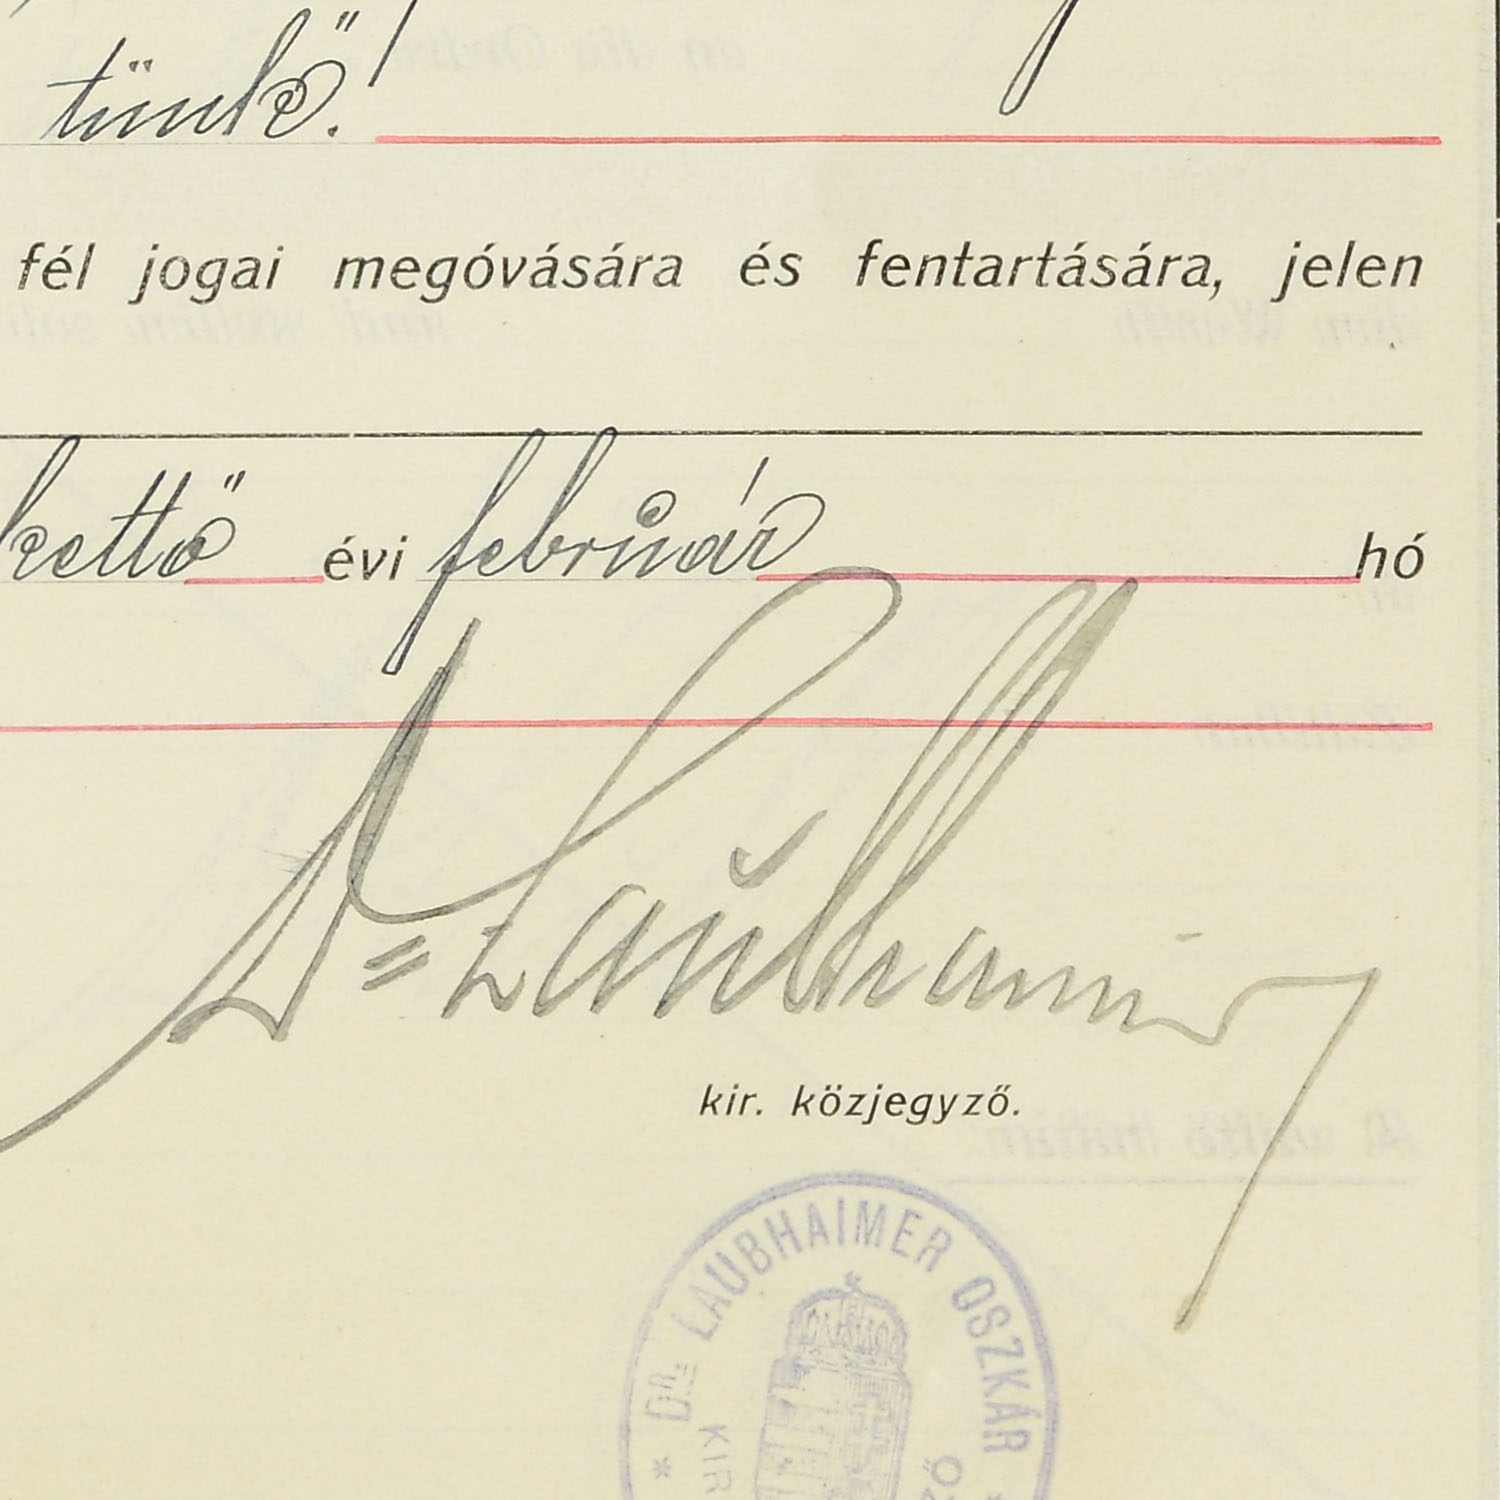 tünk.
fél jogai megóvására és fentartására, jelen
kettő évi február hó
Dr Laubhaimer
kir. közjegyző.
* DR. LAUBHAIMER OSZKÁR *
KIR